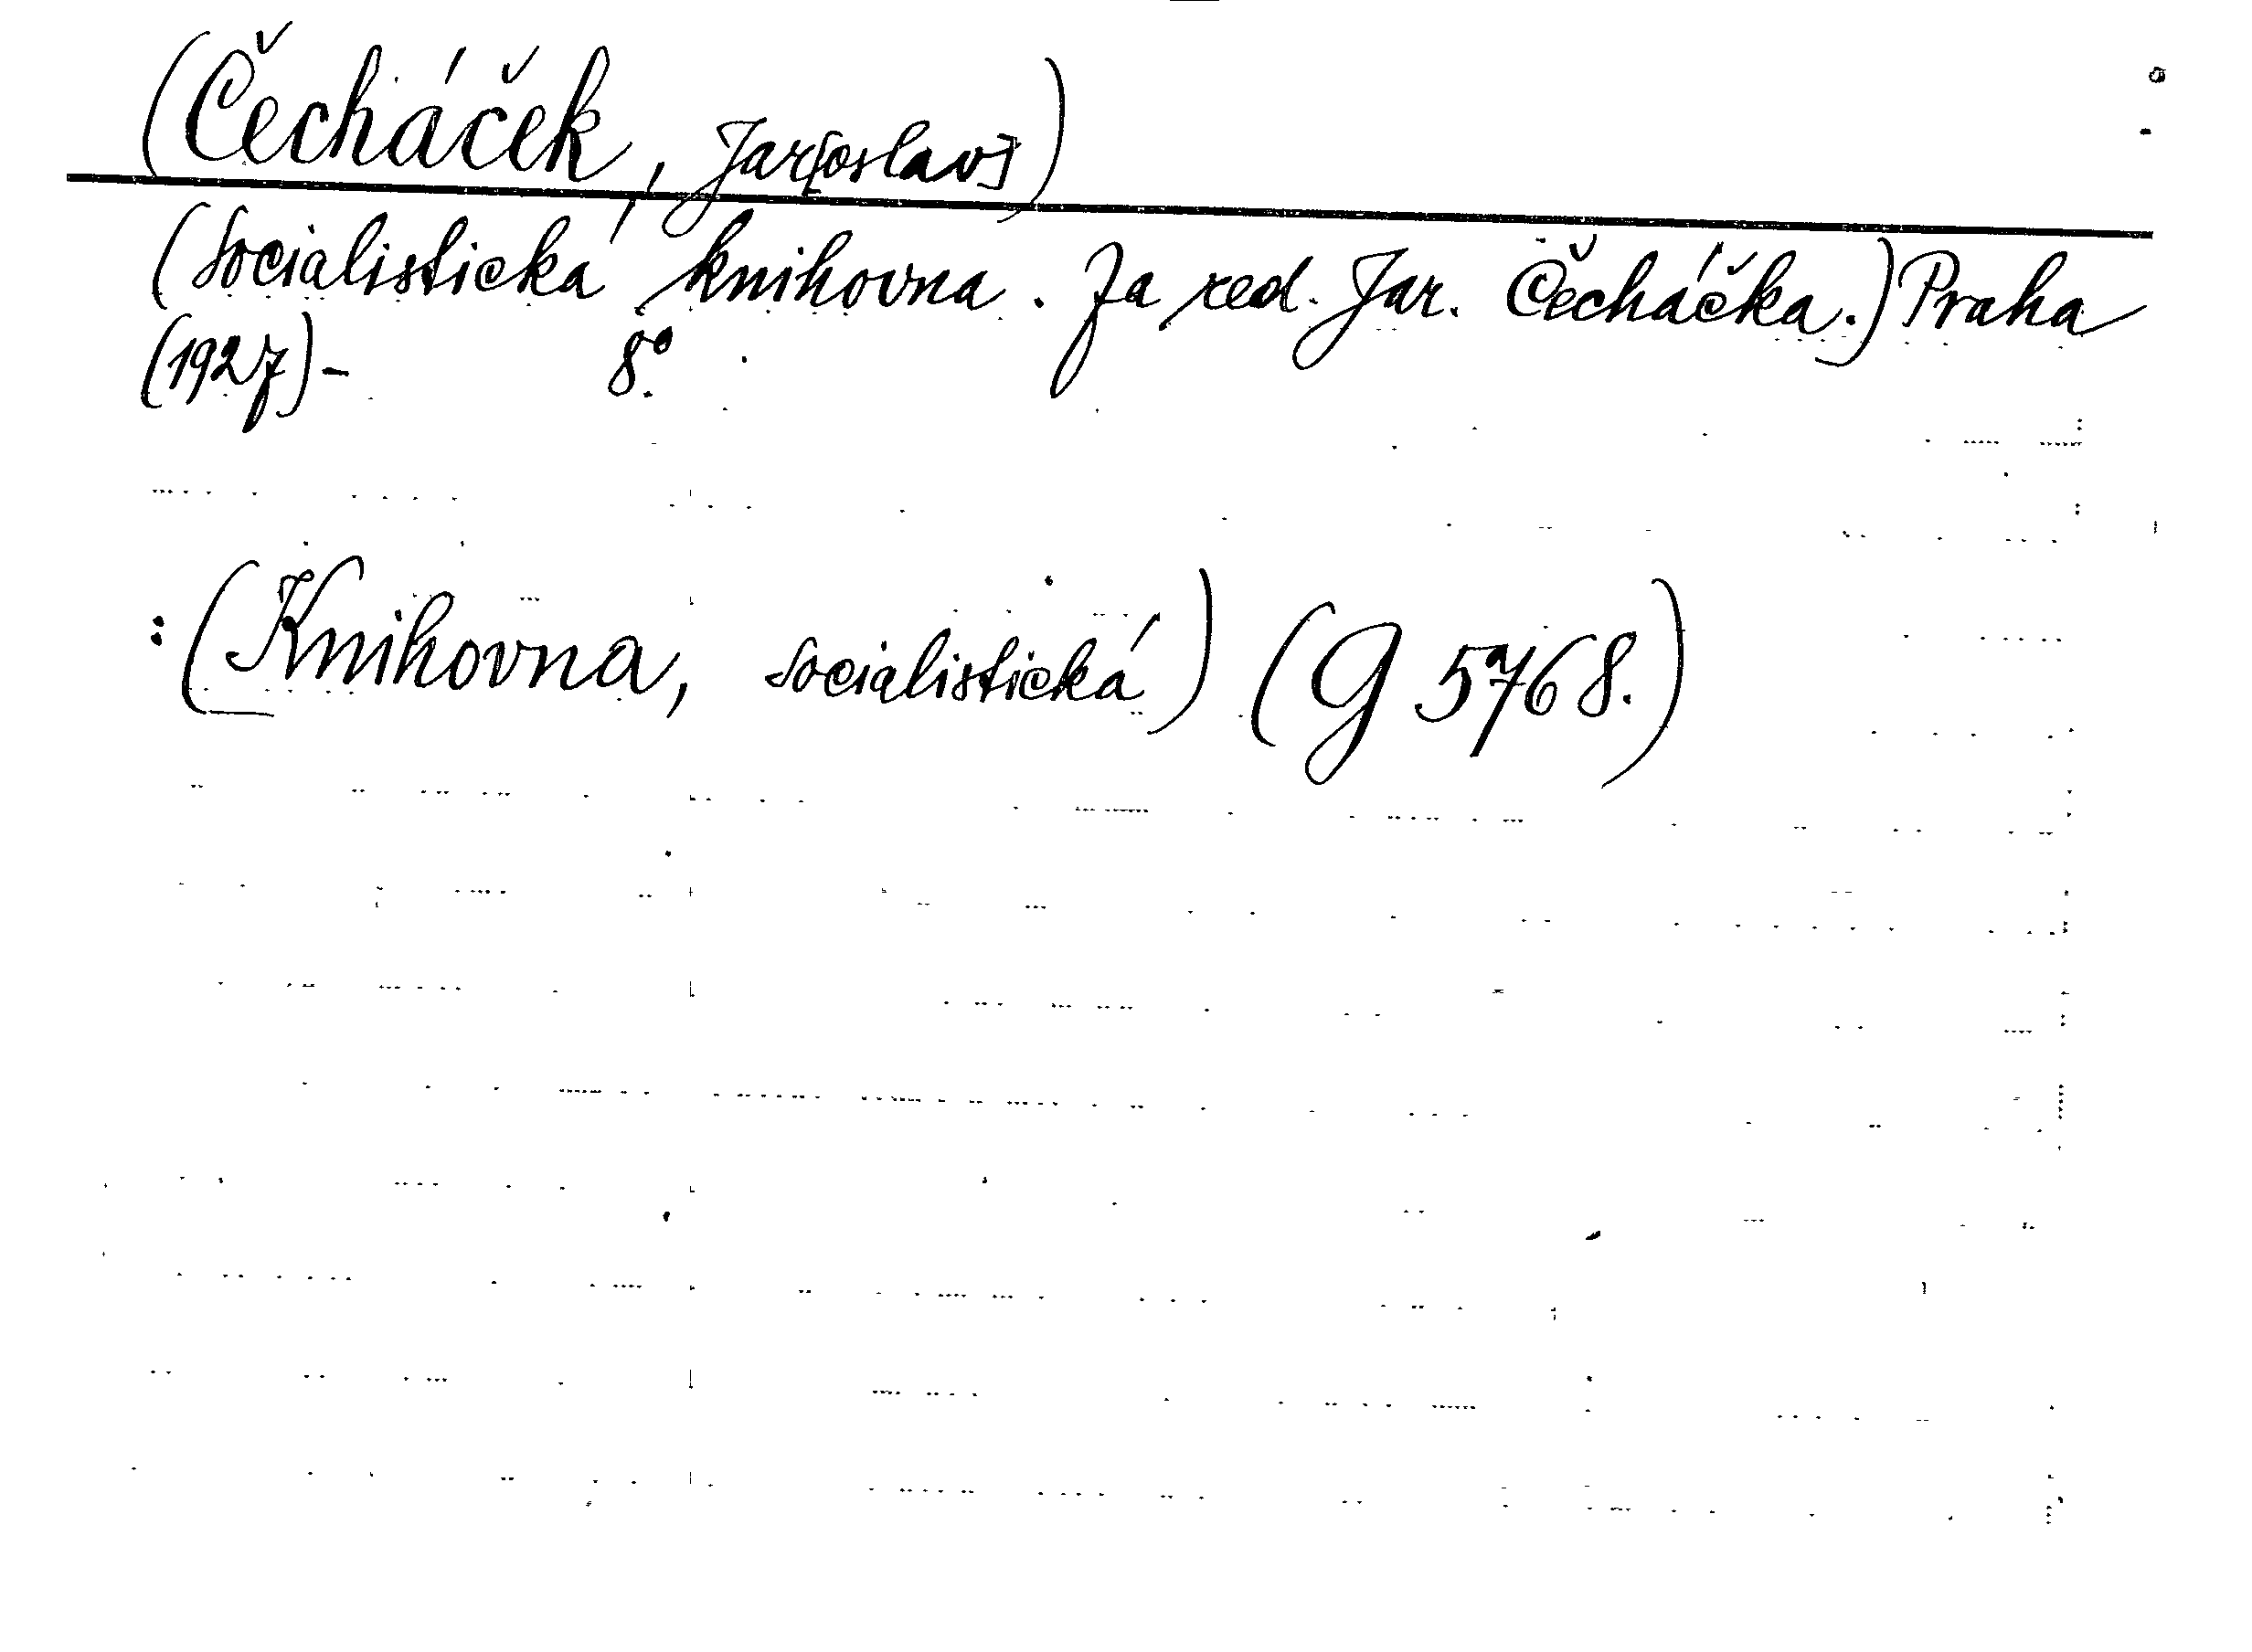 (Čecháček, Jar[oslav])
(Socialistická knihovna. Za red. Jar. Čecháčka.) Praha
(1927)- 8º.
:(Knihovna, socialistická) (G 5768.)